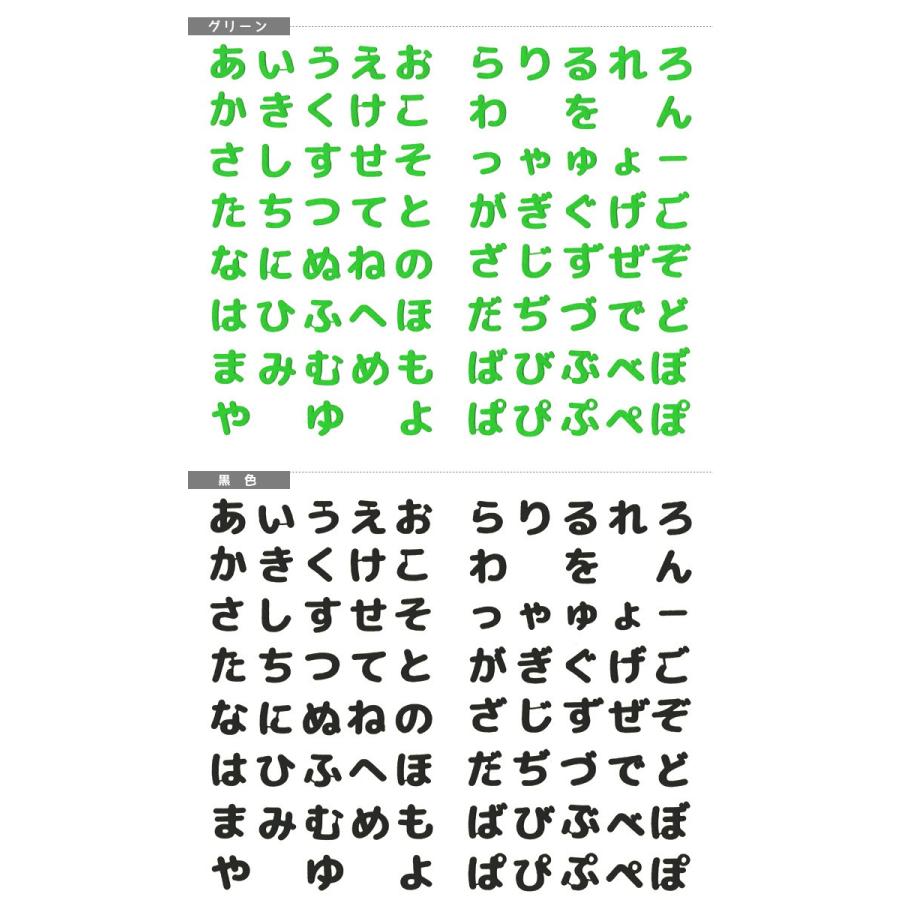 グリーン
あいうえお らりるれろ
かきくけこ わ を ん
さしすせそ っゃゅょー
たちつてと がぎぐげご
なにぬねの ざじずぜぞ
はひふへほ だぢづでど
まみむめも ばびぶべぼ
や ゆ よ ぱぴぷぺぽ
黒 色
あいうえお らりるれろ
かきくけこ わ を ん
さしすせそ っゃゅょー
たちつてと がぎぐげご
なにぬねの ざじずぜぞ
はひふへほ だぢづでど
まみむめも ばびぶべぼ
や ゆ よ ぱぴぷぺぽ